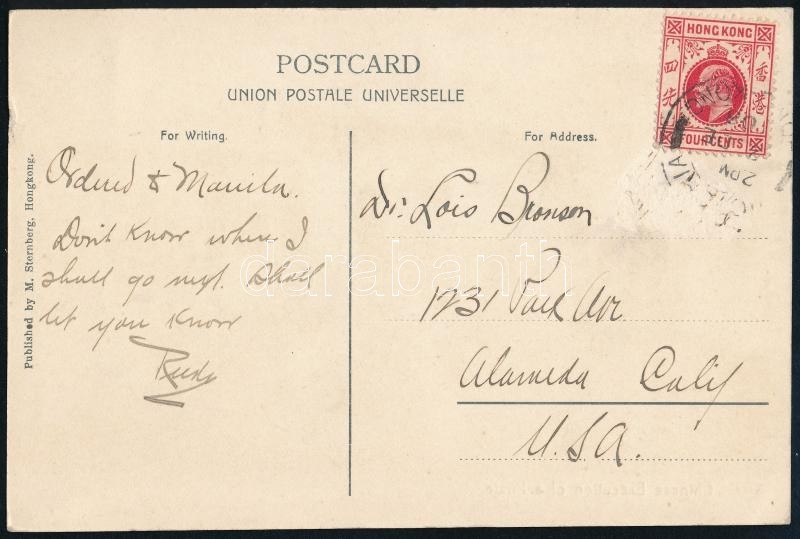 POSTCARD
UNION POSTALE UNIVERSELLE
For Writing.
For Address.
HONG KONG
四先
香港
FOUR CENTS
2 PM
Published by M. Sternberg, Hongkong.
Ordered to Manila.
Don't know where I
shall go next. Shall
let you know
Dr. Lois Bronson
1231 Park Ave
Alameda Calif
U.S.A.
darabanth